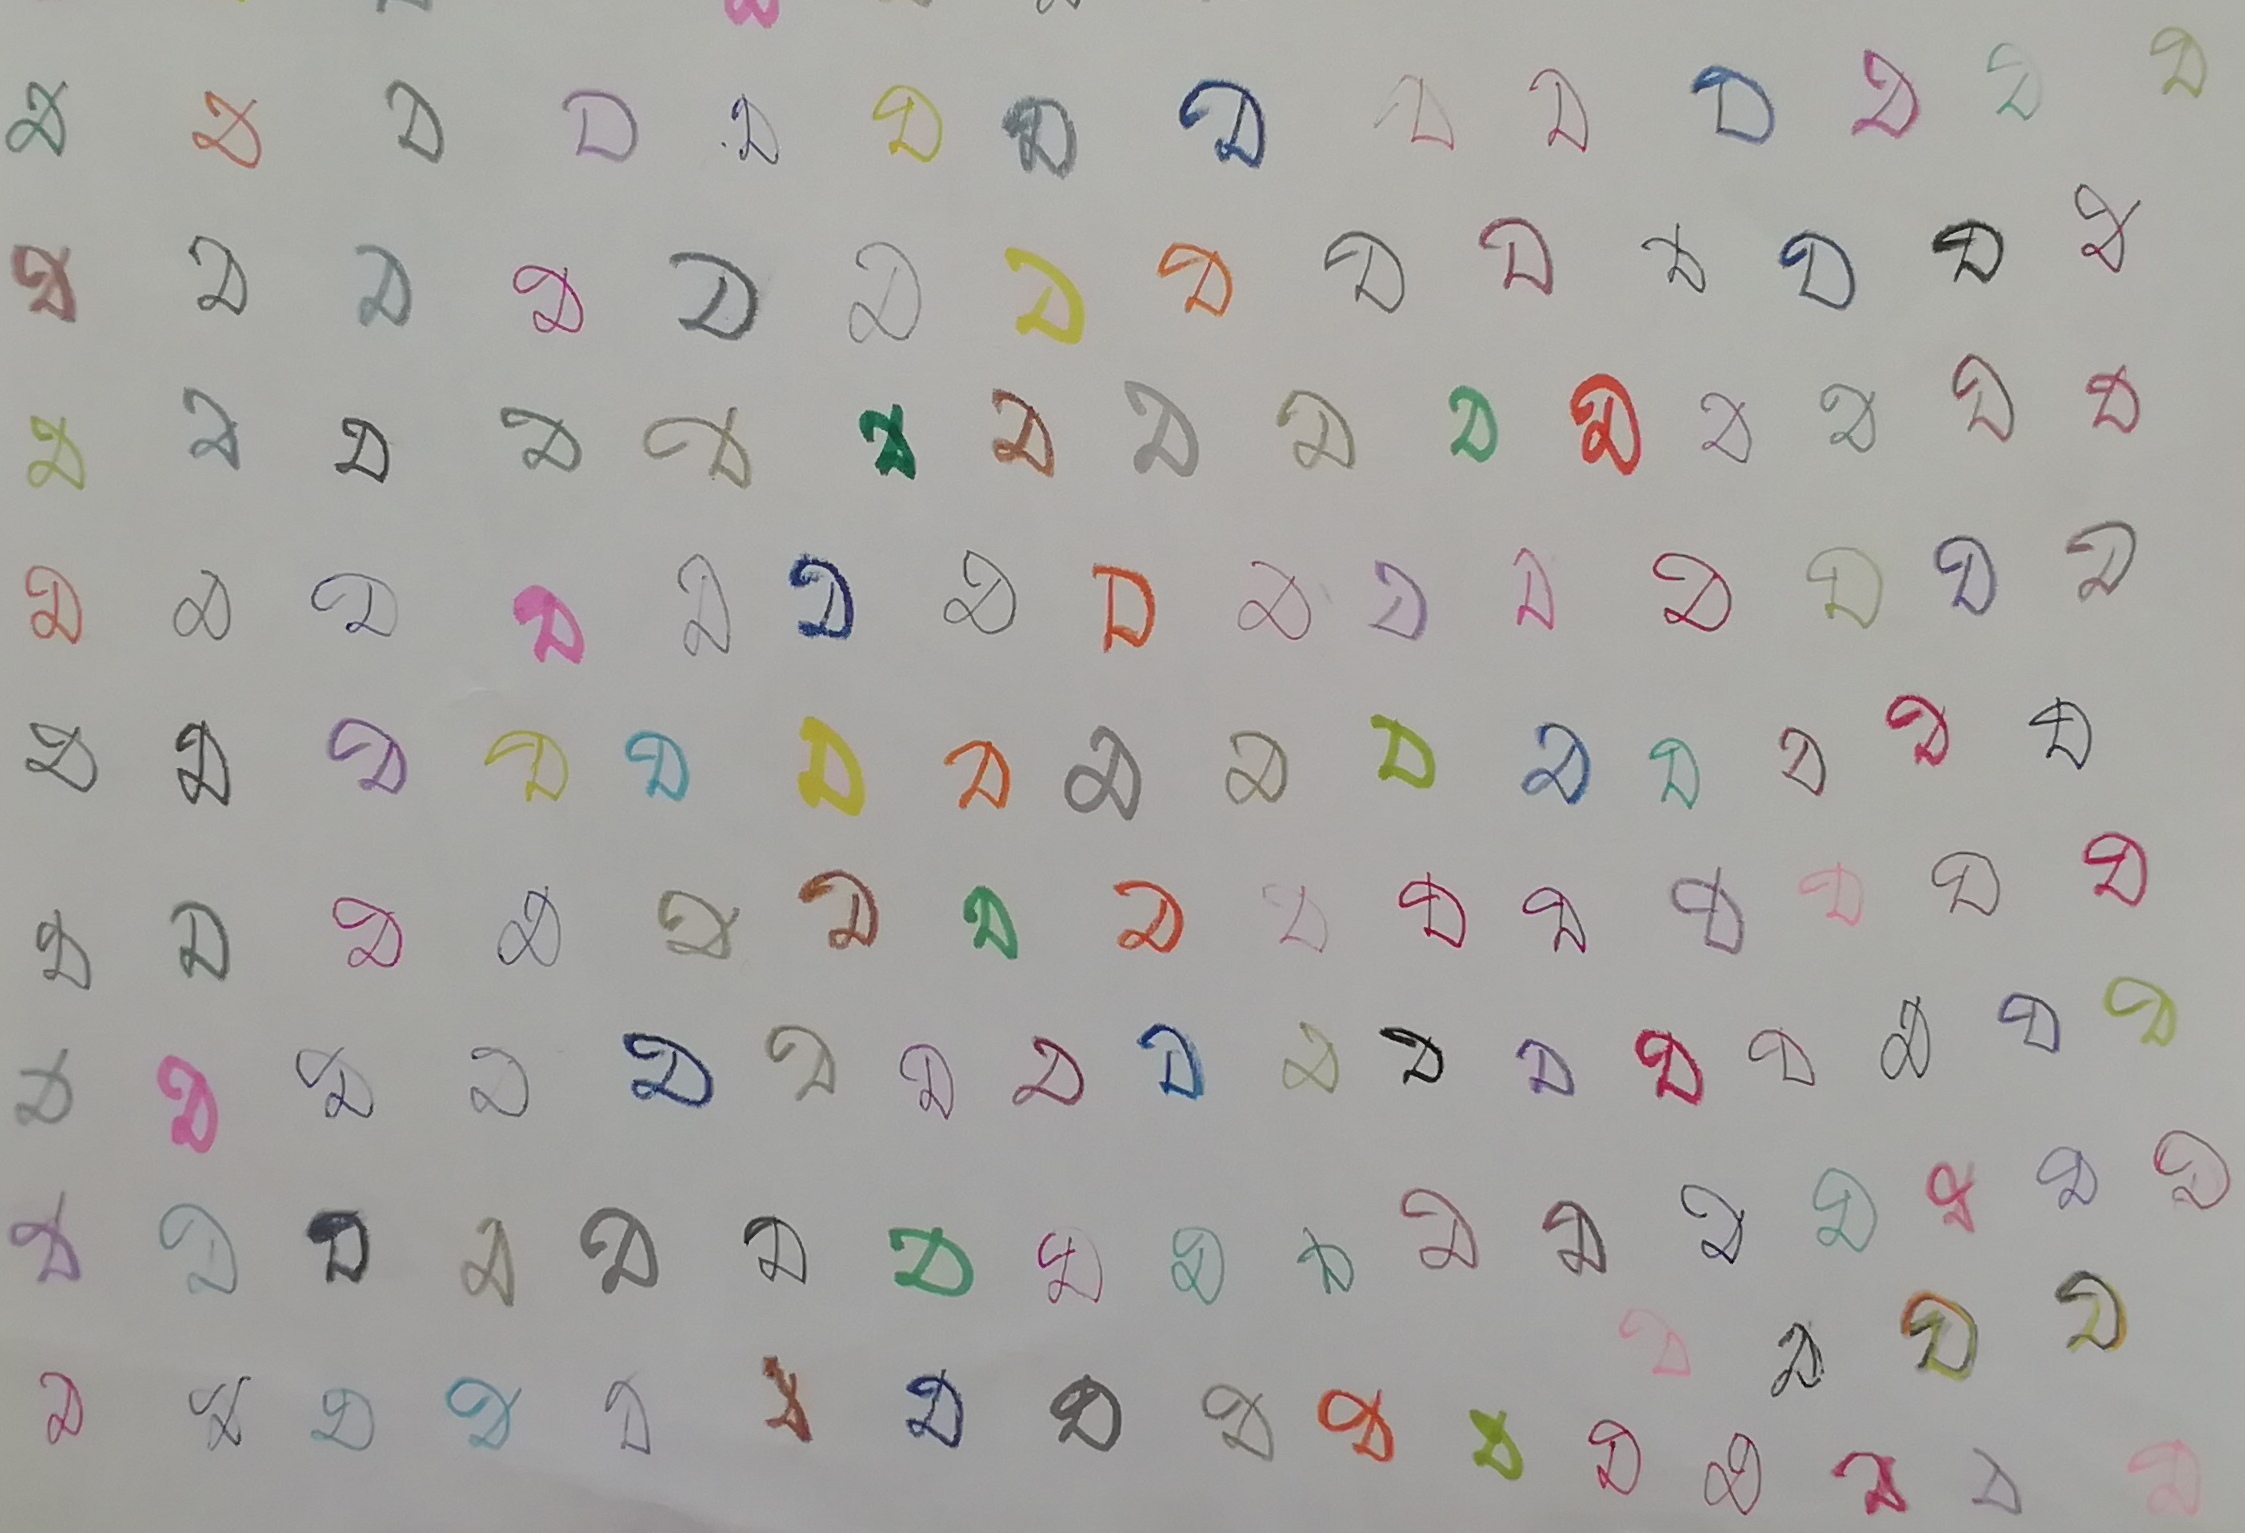 D D D D D D D D D D D D D D
D D D D D D D D D D D D D D
D D D D D D D D D D D D D D D
D D D D D D D D D D D D D D D
D D D D D D D D D D D D D D D
D D D D D D D D D D D D D D D
D D D D D D D D D D D D D D D D D
D D D D D D D D D D D D D D D D D
D D D D
D D D D D D D D D D D D D D D D